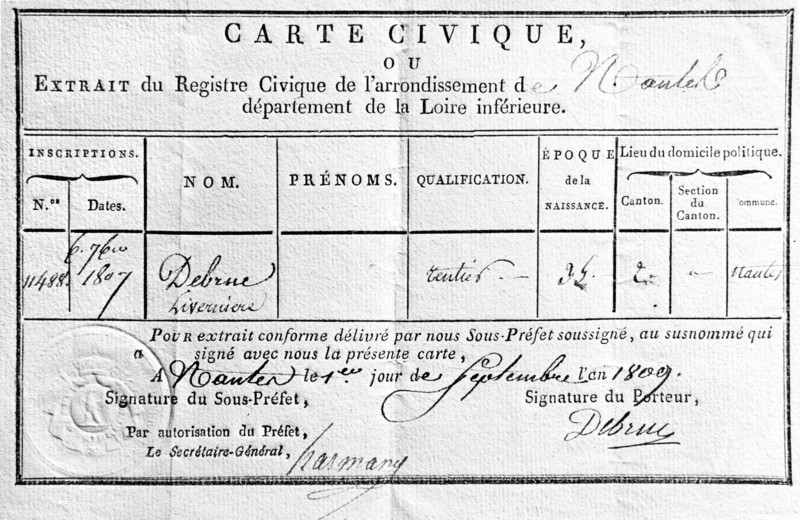 CARTE CIVIQUE,
OU
EXTRAIT du Registre Civique de l'arrondissement de Nantes
département de la Loire inférieure.
INSCRIPTIONS.
N.os
Dates.
NOM.
PRÉNOMS.
QUALIFICATION.
ÉPOQUE
de la
NAISSANCE.
Lieu du domicile politique.
Canton.
Section
du
Canton.
Commune.
11488.
6. 7bre
1807
Debrue
rentier
Nantes
POUR extrait conforme délivré par nous Sous-Préfet soussigné, au susnommé qui
a signé avec nous la présente carte,
A Nantes le 1er jour de Septembre l'an 1809.
Signature du Sous-Préfet,
Signature du Porteur,
Debrue
Par autorisation du Préfet,
Le Secrétaire-Général,